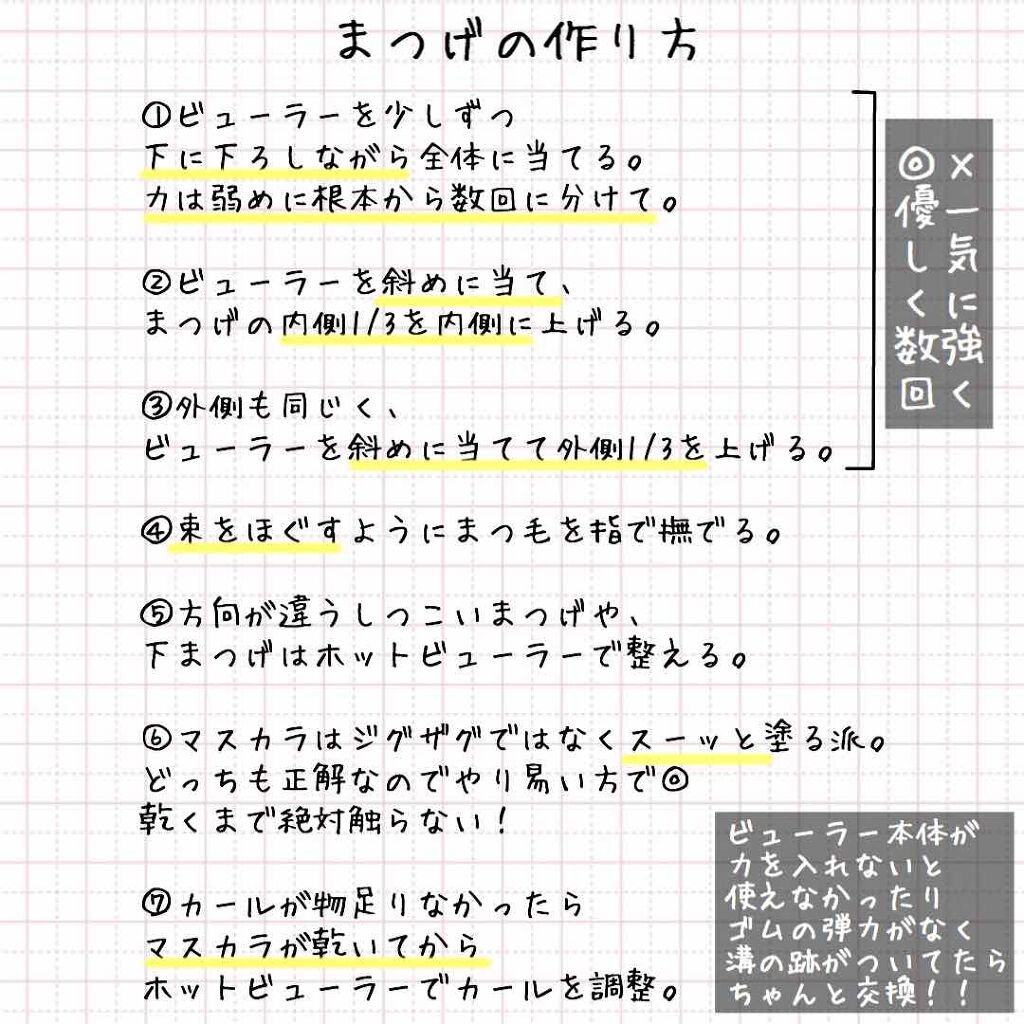 まつげの作り方
①ビューラーを少しずつ
下に下ろしながら全体に当てる。
力は弱めに根本から数回に分けて。
②ビューラーを斜めに当て、
まつげの内側1/3を内側に上げる。
③外側も同じく、
ビューラーを斜めに当てて外側1/3を上げる。
×一気に強く
◎優しく数回
④束をほぐすようにまつ毛を指で撫でる。
⑤方向が違うしつこいまつげや、
下まつげはホットビューラーで整える。
⑥マスカラはジグザグではなくスーッと塗る派。
どっちも正解なのでやり易い方で◎
乾くまで絶対触らない！
⑦カールが物足りなかったら
マスカラが乾いてから
ホットビューラーでカールを調整。
ビューラー本体が
力を入れないと
使えなかったり
ゴムの弾力がなく
溝の跡がついてたら
ちゃんと交換！！